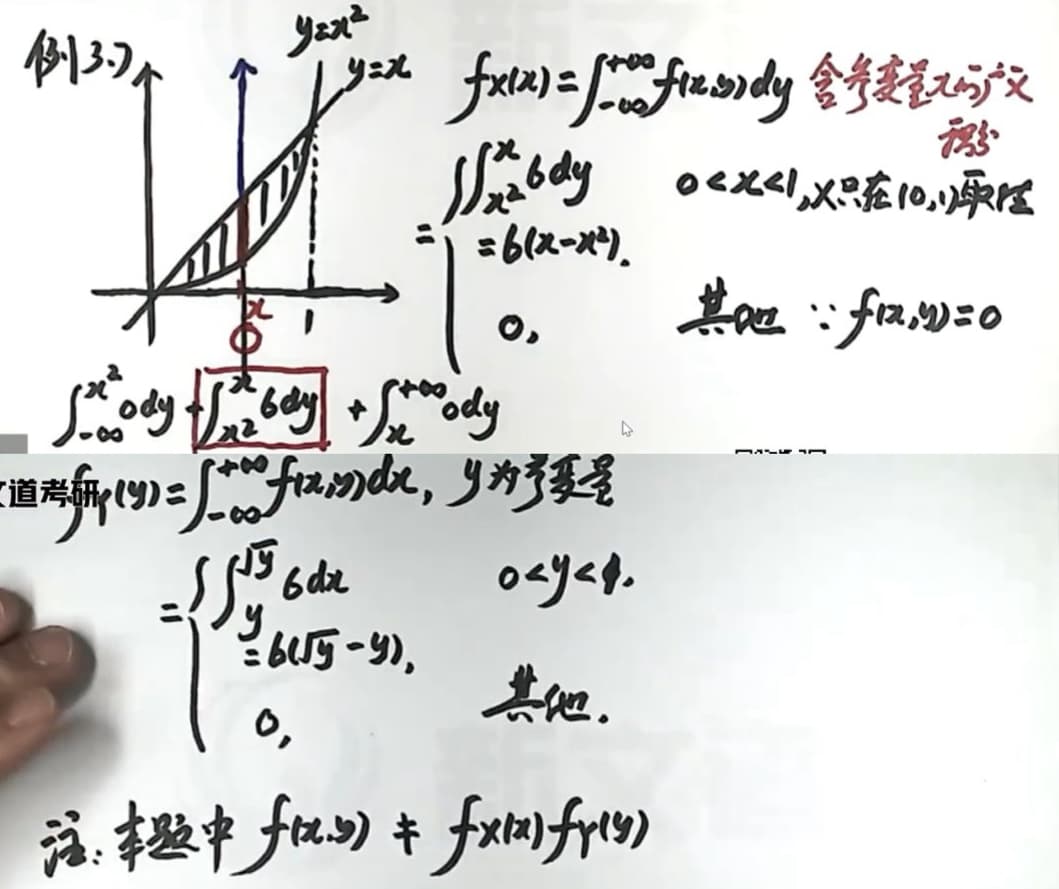 例3.7
y=x²
y=x
x
1
f_X(x)=∫_{-∞}^{+∞} f(x,y)dy 含参变量x的广义
积分
= { ∫_{x²}^{x} 6dy 0<x<1, X只在(0,1)取值
=6(x-x²).
0, 其他 ∵ f(x,y)=0
∫_{-∞}^{x²} 0dy + ∫_{x²}^{x} 6dy + ∫_{x}^{+∞} 0dy
道考研
f_Y(y)=∫_{-∞}^{+∞} f(x,y)dx, y为参变量
= { ∫_{y}^{√y} 6dx 0<y<1.
=6(√y-y),
0, 其他.
注: 本题中 f(x,y) ≠ f_X(x)f_Y(y)